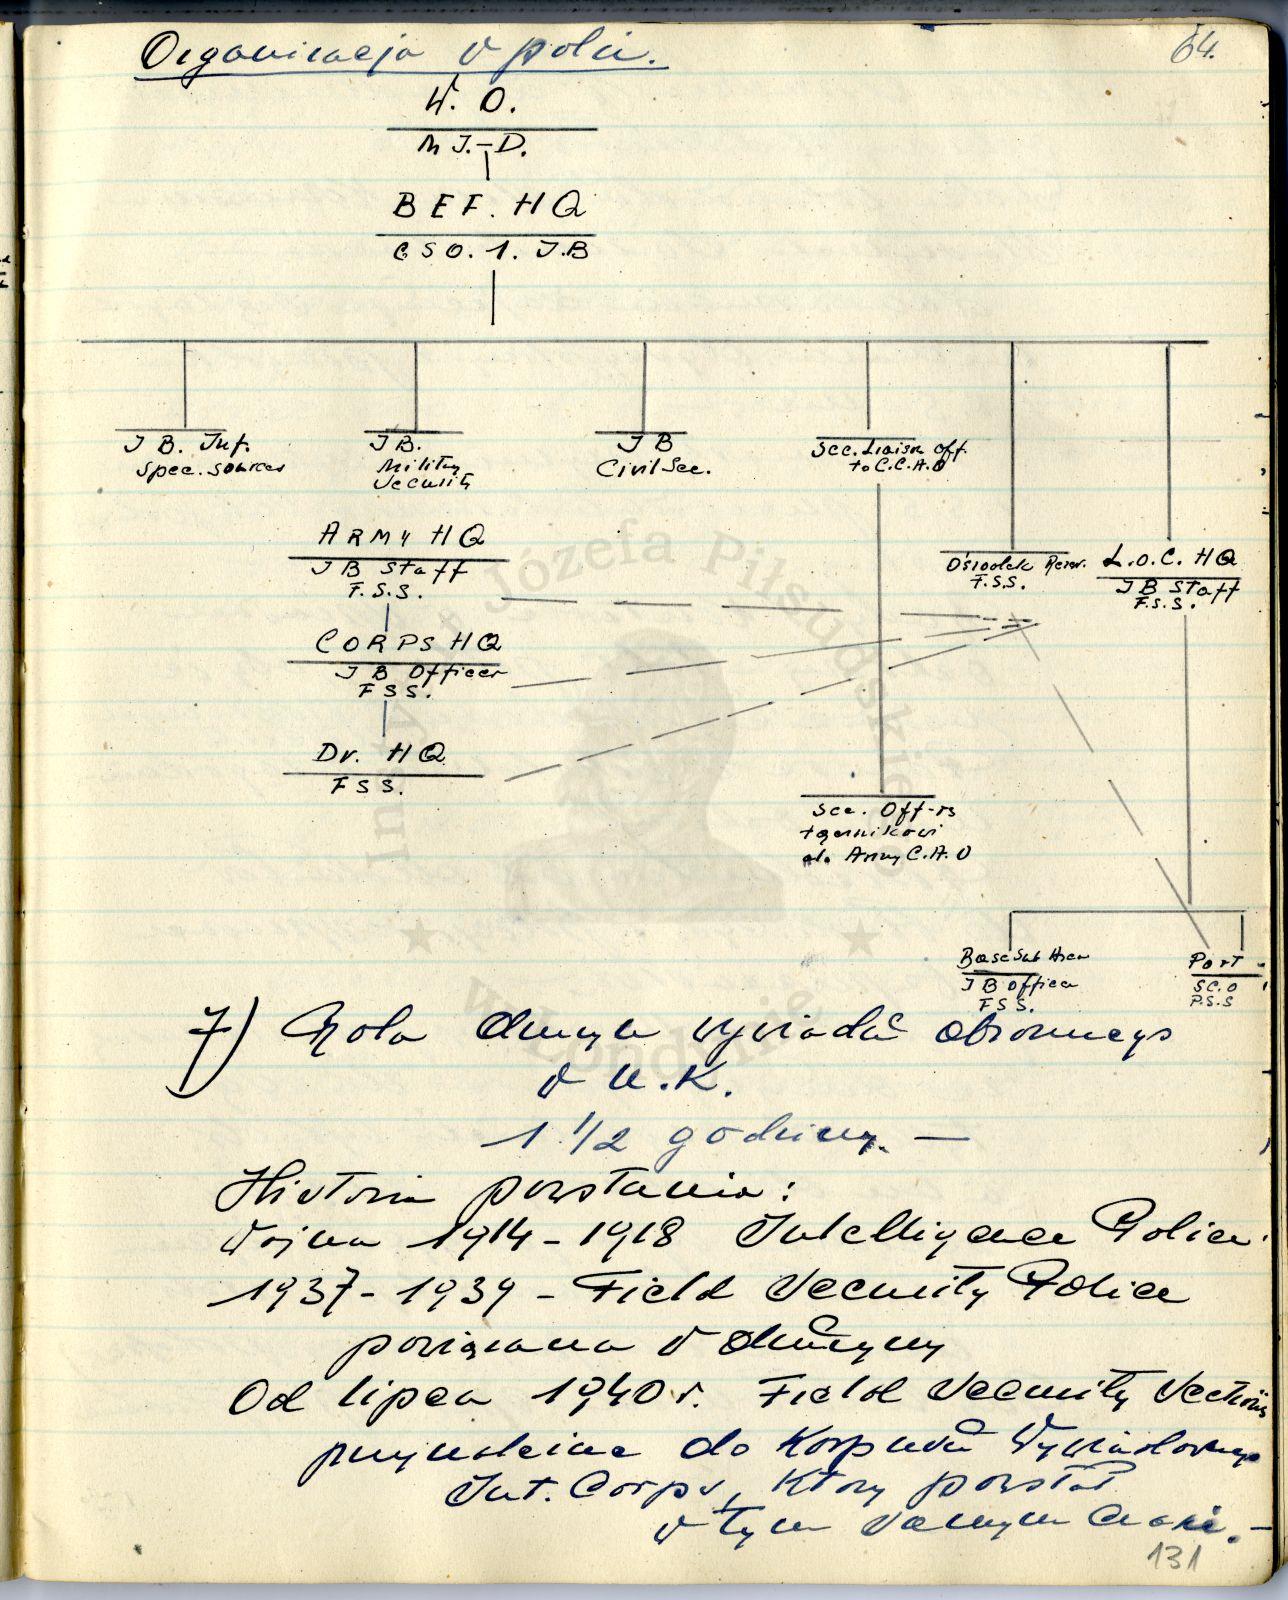 Organizacja w polu.
64.
W. O.
M I. - D.
BEF. HQ
GSO. 1. I.B
I B. Inf.
Spec. sources
I B.
Military
Security
I B
Civil Sec.
Sec. Liaison Off.
to C.C.A.O
ARMY HQ
I B Staff
F.S.S.
Ośrodek Rezer.
F.S.S.
L.O.C. HQ
I B Staff
F.S.S.
CORPS HQ
I B Officer
FSS.
Dv. HQ
FSS.
Sec. Off-rs
łącznikowi
do Army C.A.O
Base Sub Area
I B Officer
FSS.
Port
SC.O
P.S.S
7) Rola drużyn wywiadu obronnego
w U.K.
1 1/2 godziny. —
Historia powstania:
Wojna 1914 - 1918 Intelligence Police.
1937 - 1939 - Field Security Police
powiązana w drużyny
Od lipca 1940 r. Field Security Sections
przydzielone do Korpusu Wywiadowczego
Int. Corps, który powstał
w tym samym czasie. —
131
Józefa Piłsudskiego
w Londynie